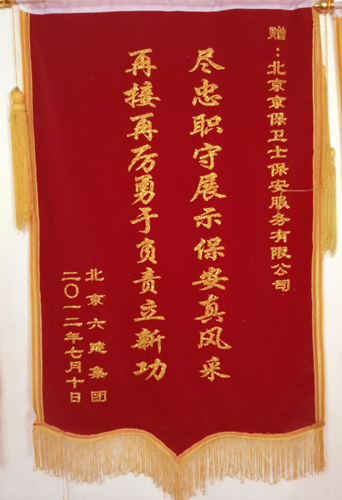 赠：北京京保卫士保安服务有限公司
尽忠职守展示保安真风采
再接再厉勇于负责立新功
北京六建集团
二〇一二年七月十日